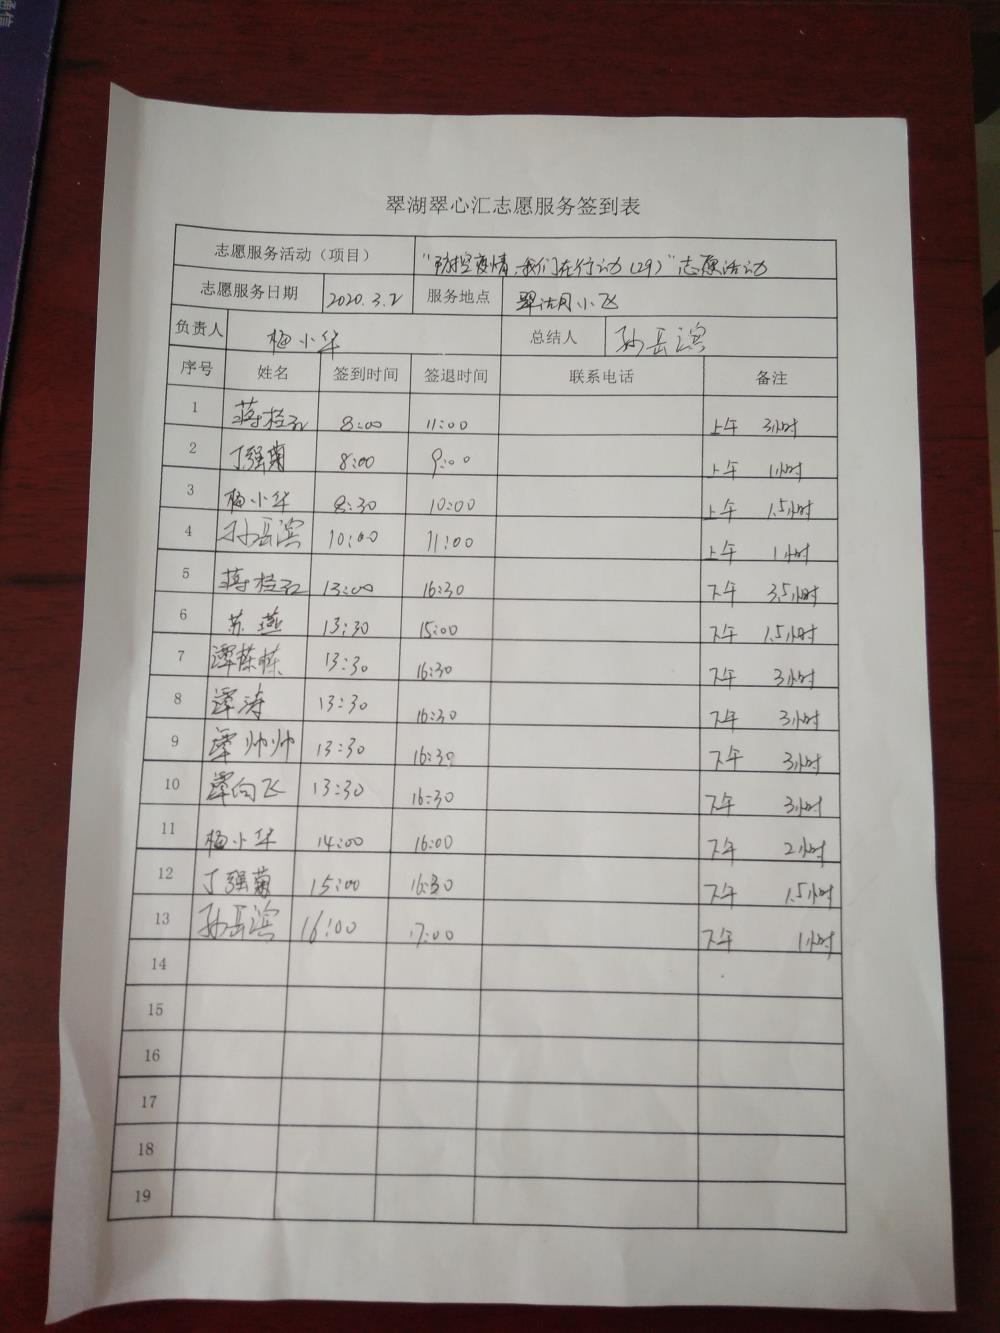 通信
翠湖翠心汇志愿服务签到表
志愿服务活动（项目） "防控疫情、我们在行动（29）"志愿活动
志愿服务日期 2020.3.2 服务地点 翠湖月小飞
负责人 梅小华 总结人 孙岳滨
序号 姓名 签到时间 签退时间 联系电话 备注
1 蒋桂红 8:00 11:00 上午 3小时
2 丁强菊 8:00 9:00 上午 1小时
3 梅小华 8:30 10:00 上午 1.5小时
4 孙岳滨 10:00 11:00 上午 1小时
5 蒋桂红 13:00 16:30 下午 3.5小时
6 苏燕 13:30 15:00 下午 1.5小时
7 谭栋栋 13:30 16:30 下午 3小时
8 谭涛 13:30 16:30 下午 3小时
9 谭帅帅 13:30 16:30 下午 3小时
10 谭向飞 13:30 16:30 下午 3小时
11 梅小华 14:00 16:00 下午 2小时
12 丁强菊 15:00 16:30 下午 1.5小时
13 孙岳滨 16:00 17:00 下午 1小时
14
15
16
17
18
19